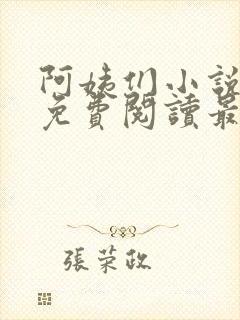 阿姨们小說
免費閱讀最
張荣政